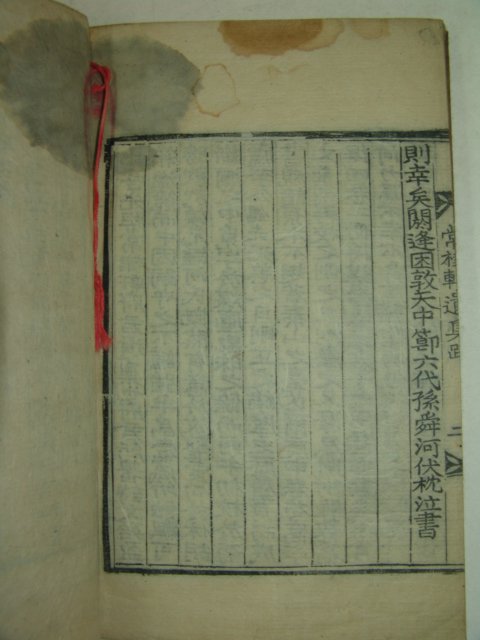 則幸矣閼逢困敦天中節六代孫舜河伏枕泣書
軒遺眞蹟
二